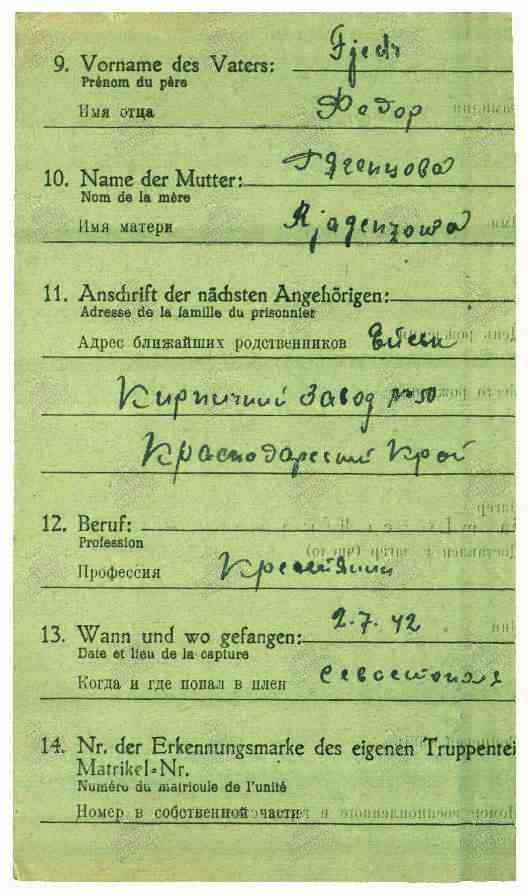 9. Vorname des Vaters: Fjedr
Prénom du père
Имя отца Федор
10. Name der Mutter: Рягенцова
Nom de la mère
Имя матери Rjagenzowa
11. Anschrift der nächsten Angehörigen:
Adresse de la famille du prisonnier
Адрес ближайших родственников
Кирпичний завод № 50
Краснодарский Край
12. Beruf:
Profession
Профессия Крестянин
13. Wann und wo gefangen: 2.7.42
Date et lieu de la capture
Когда и где попал в плен Севастополя
14. Nr. der Erkennungsmarke des eigenen Truppentei
Matrikel-Nr.
Numéro du matricule de l'unité
Номер в собственной части